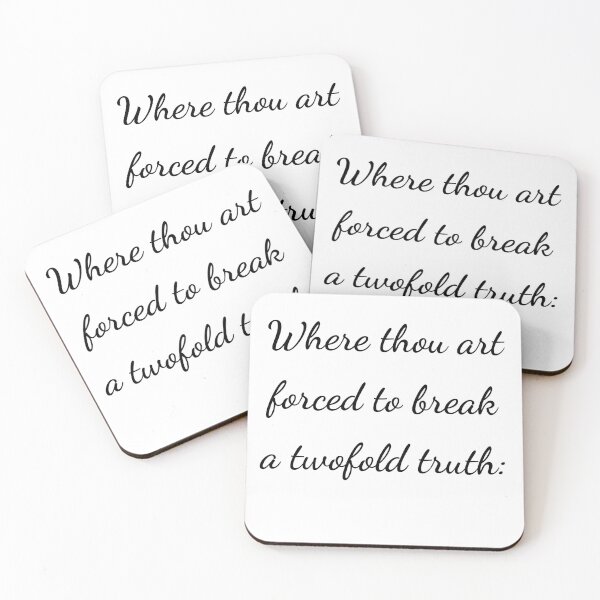 Where thou art
forced to break
Where thou art
forced to break
a twofold truth:
Where thou art
forced to break
a twofold
Where thou art
forced to break
a twofold truth: